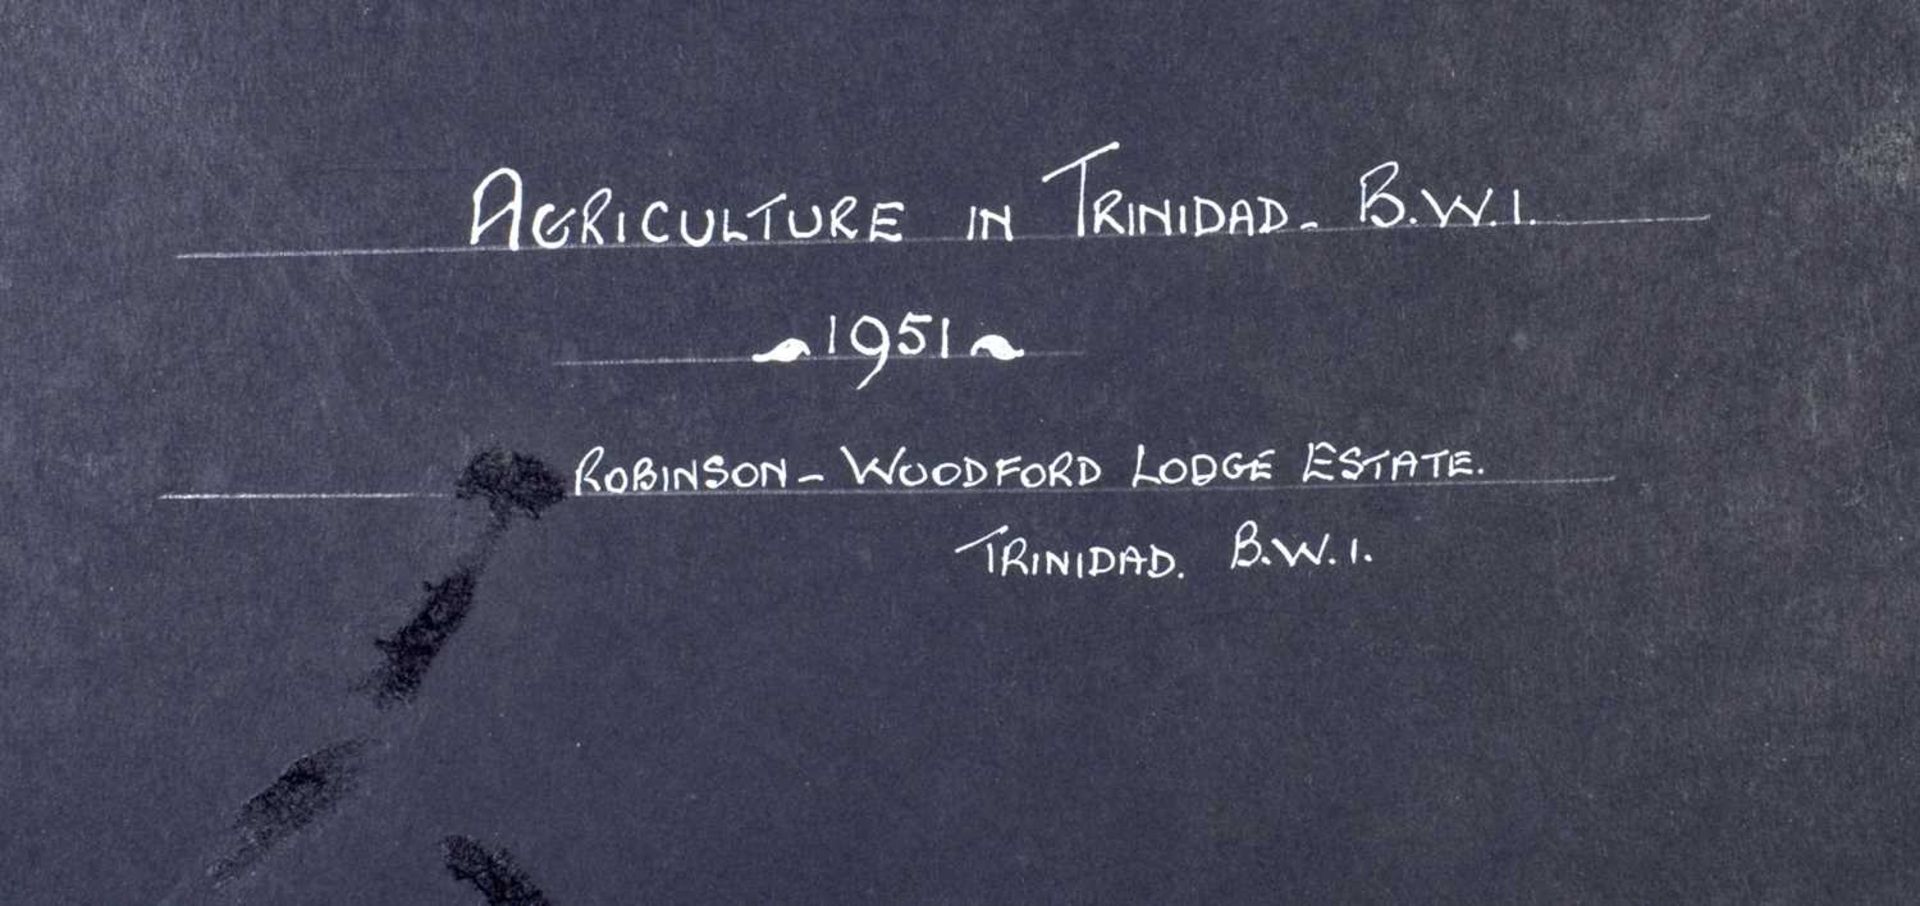 AGRICULTURE IN TRINIDAD - B.W.I.
1951
ROBINSON - WOODFORD LODGE ESTATE.
TRINIDAD. B.W.I.